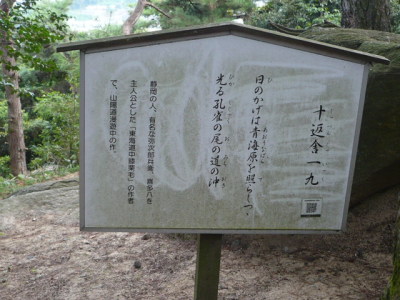 十返舎一九
日のかげは青海原を照らしつゝ
光る孔雀の尾の道の沖
静岡の人、有名な弥次郎兵衛、喜多八を
主人公とした「東海道中膝栗毛」の作者
で、山陽道漫遊中の作。